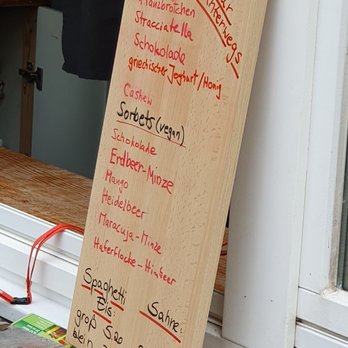 unterwegs
Franzbrötchen
Stracciatella
Schokolade
griechischer Joghurt/Honig
Cashew
Sorbets (vegan)
Schokolade
Erdbeer-Minze
Mango
Heidelbeer
Maracuja-Minze
Haferflocke-Himbeer
Spaghetti
Eis
Sahne
groß 5,20
klein